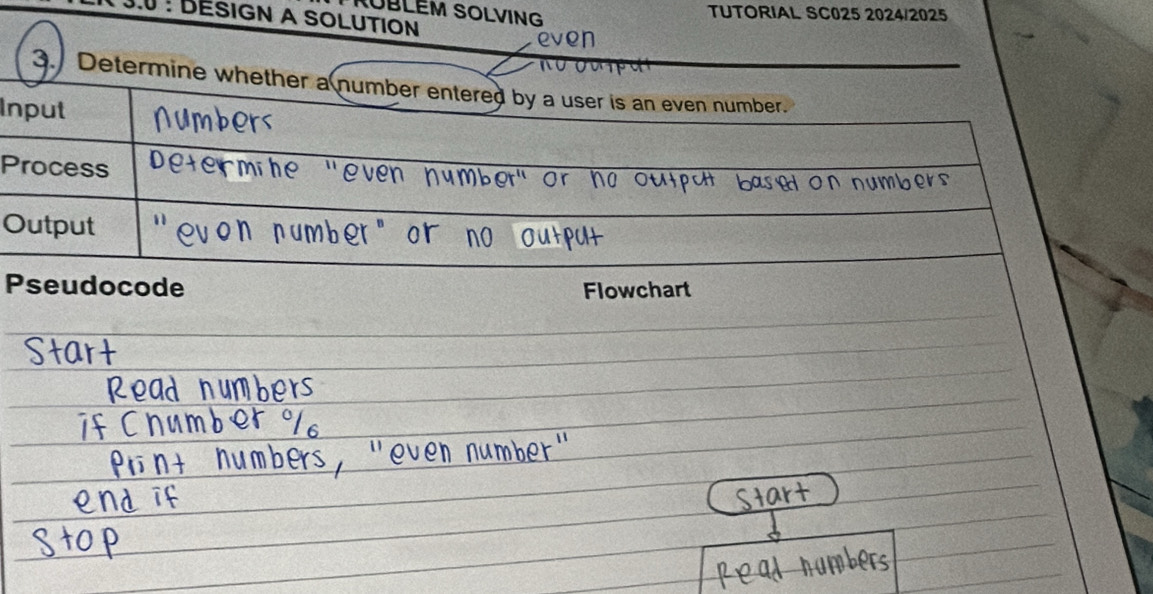 3.0 : DESIGN A SOLUTION
PROBLEM SOLVING
TUTORIAL SC025 2024/2025
even
no output
3. Determine whether a number entered by a user is an even number.
Input numbers
Process Determine "even number" or no output based on numbers
Output "even number" or no output
Pseudocode
Flowchart
Start
Read numbers
if (number %
Print numbers, "even number"
end if
Stop
Start
Read numbers